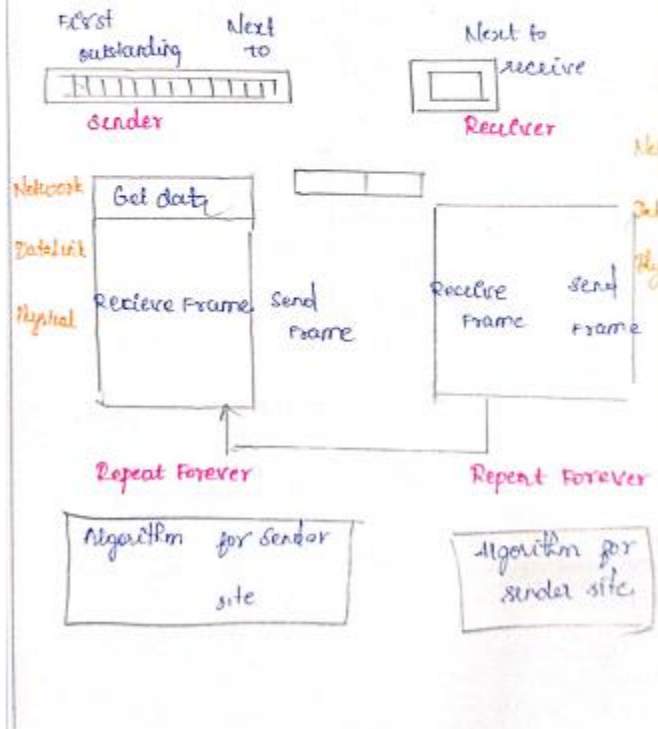 First Next
outstanding to
Sender
Next to
receive
Receiver
Network
Datalink
Physical
Get data
Recieve Frame
Send
Frame
Receive
Frame
Send
Frame
Repeat Forever
Repeat Forever
Algorithm for Sender
site
Algorithm for
sender site